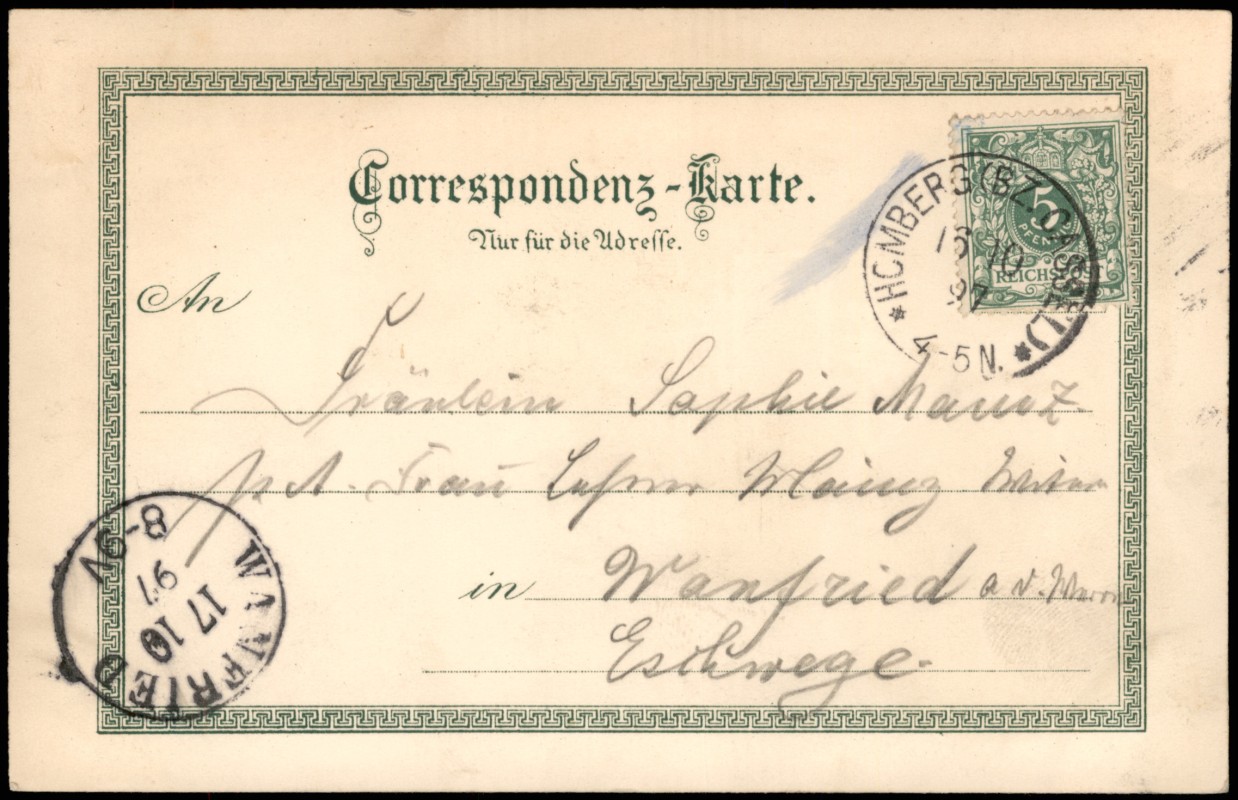 Correspondenz-Karte.
Nur für die Adresse.
5
PFENNIG
REICHSPOST
* HOMBERG (BZ. CASSEL) *
16 10
97
4-5N.
An
Fräulein Sophie
Frau Lehrer Mainz
in Wanfried a d. Werra
Eschwege.
WANFRIED
17 10
97
8-9V